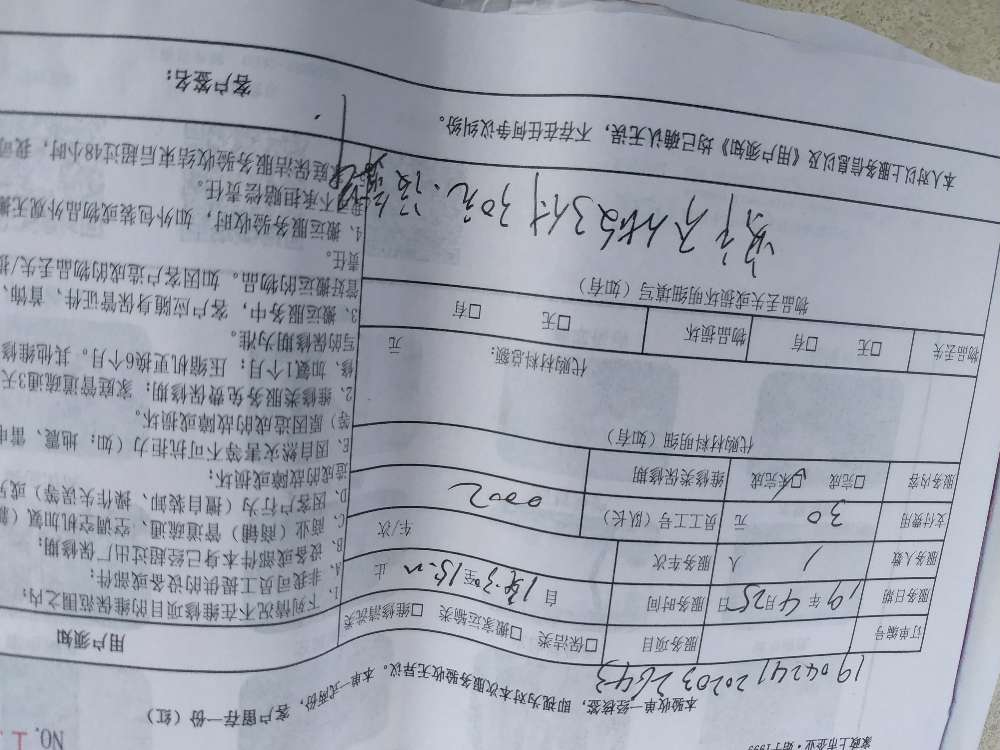 家政上市企业·始于1993
NO.
本验收单一经核签，即视为对本次服务验收无异议。本单一式两份，客户留存一份（红）
订单编号
服务项目 □保洁类 □搬家运输类 □维修清洗类
服务日期 19年4月25日 服务时间 自 至 止
服务人数 1 人 服务车次 车/次
支付费用 30 元 员工工号（队长） 0002
服务内容 □完成 □未完成 维修类保修期
代购材料明细（如有）
代购材料总额： 元
物品丢失 □无 □有 物品损坏 □无 □有
物品丢失或损坏明细填写（如有）
30元
本人对以上服务信息以及《用户须知》均已确认无误，不存在任何争议纠纷。
客户签名：
用户须知
1. 下列情况不在维修项目的维保范围之内：
A. 非我司员工提供的设备或部件；
B. 设备或部件本身已经超过出厂保修期；
C. 商业（商铺）管道疏通、空调空机加氟（
D. 因客户行为（擅自装卸、操作失误等）或
造成的故障或损坏；
E. 因自然灾害等不可抗拒力（如：地震、雷
等）原因造成的故障或损坏。
2. 维修类服务免费保修期：家庭管道疏通3天
修、加氟1个月；压缩机更换6个月。其他维修
写的保修期为准。
3、搬运服务中，客户应随身保管证件、首饰、
管好搬运的物品。如因客户造成的物品丢失/
责任。
4、搬运服务验收时，如外包装或物品外观无
不承担赔偿责任。
家庭保洁服务验收结束后超过48小时，我